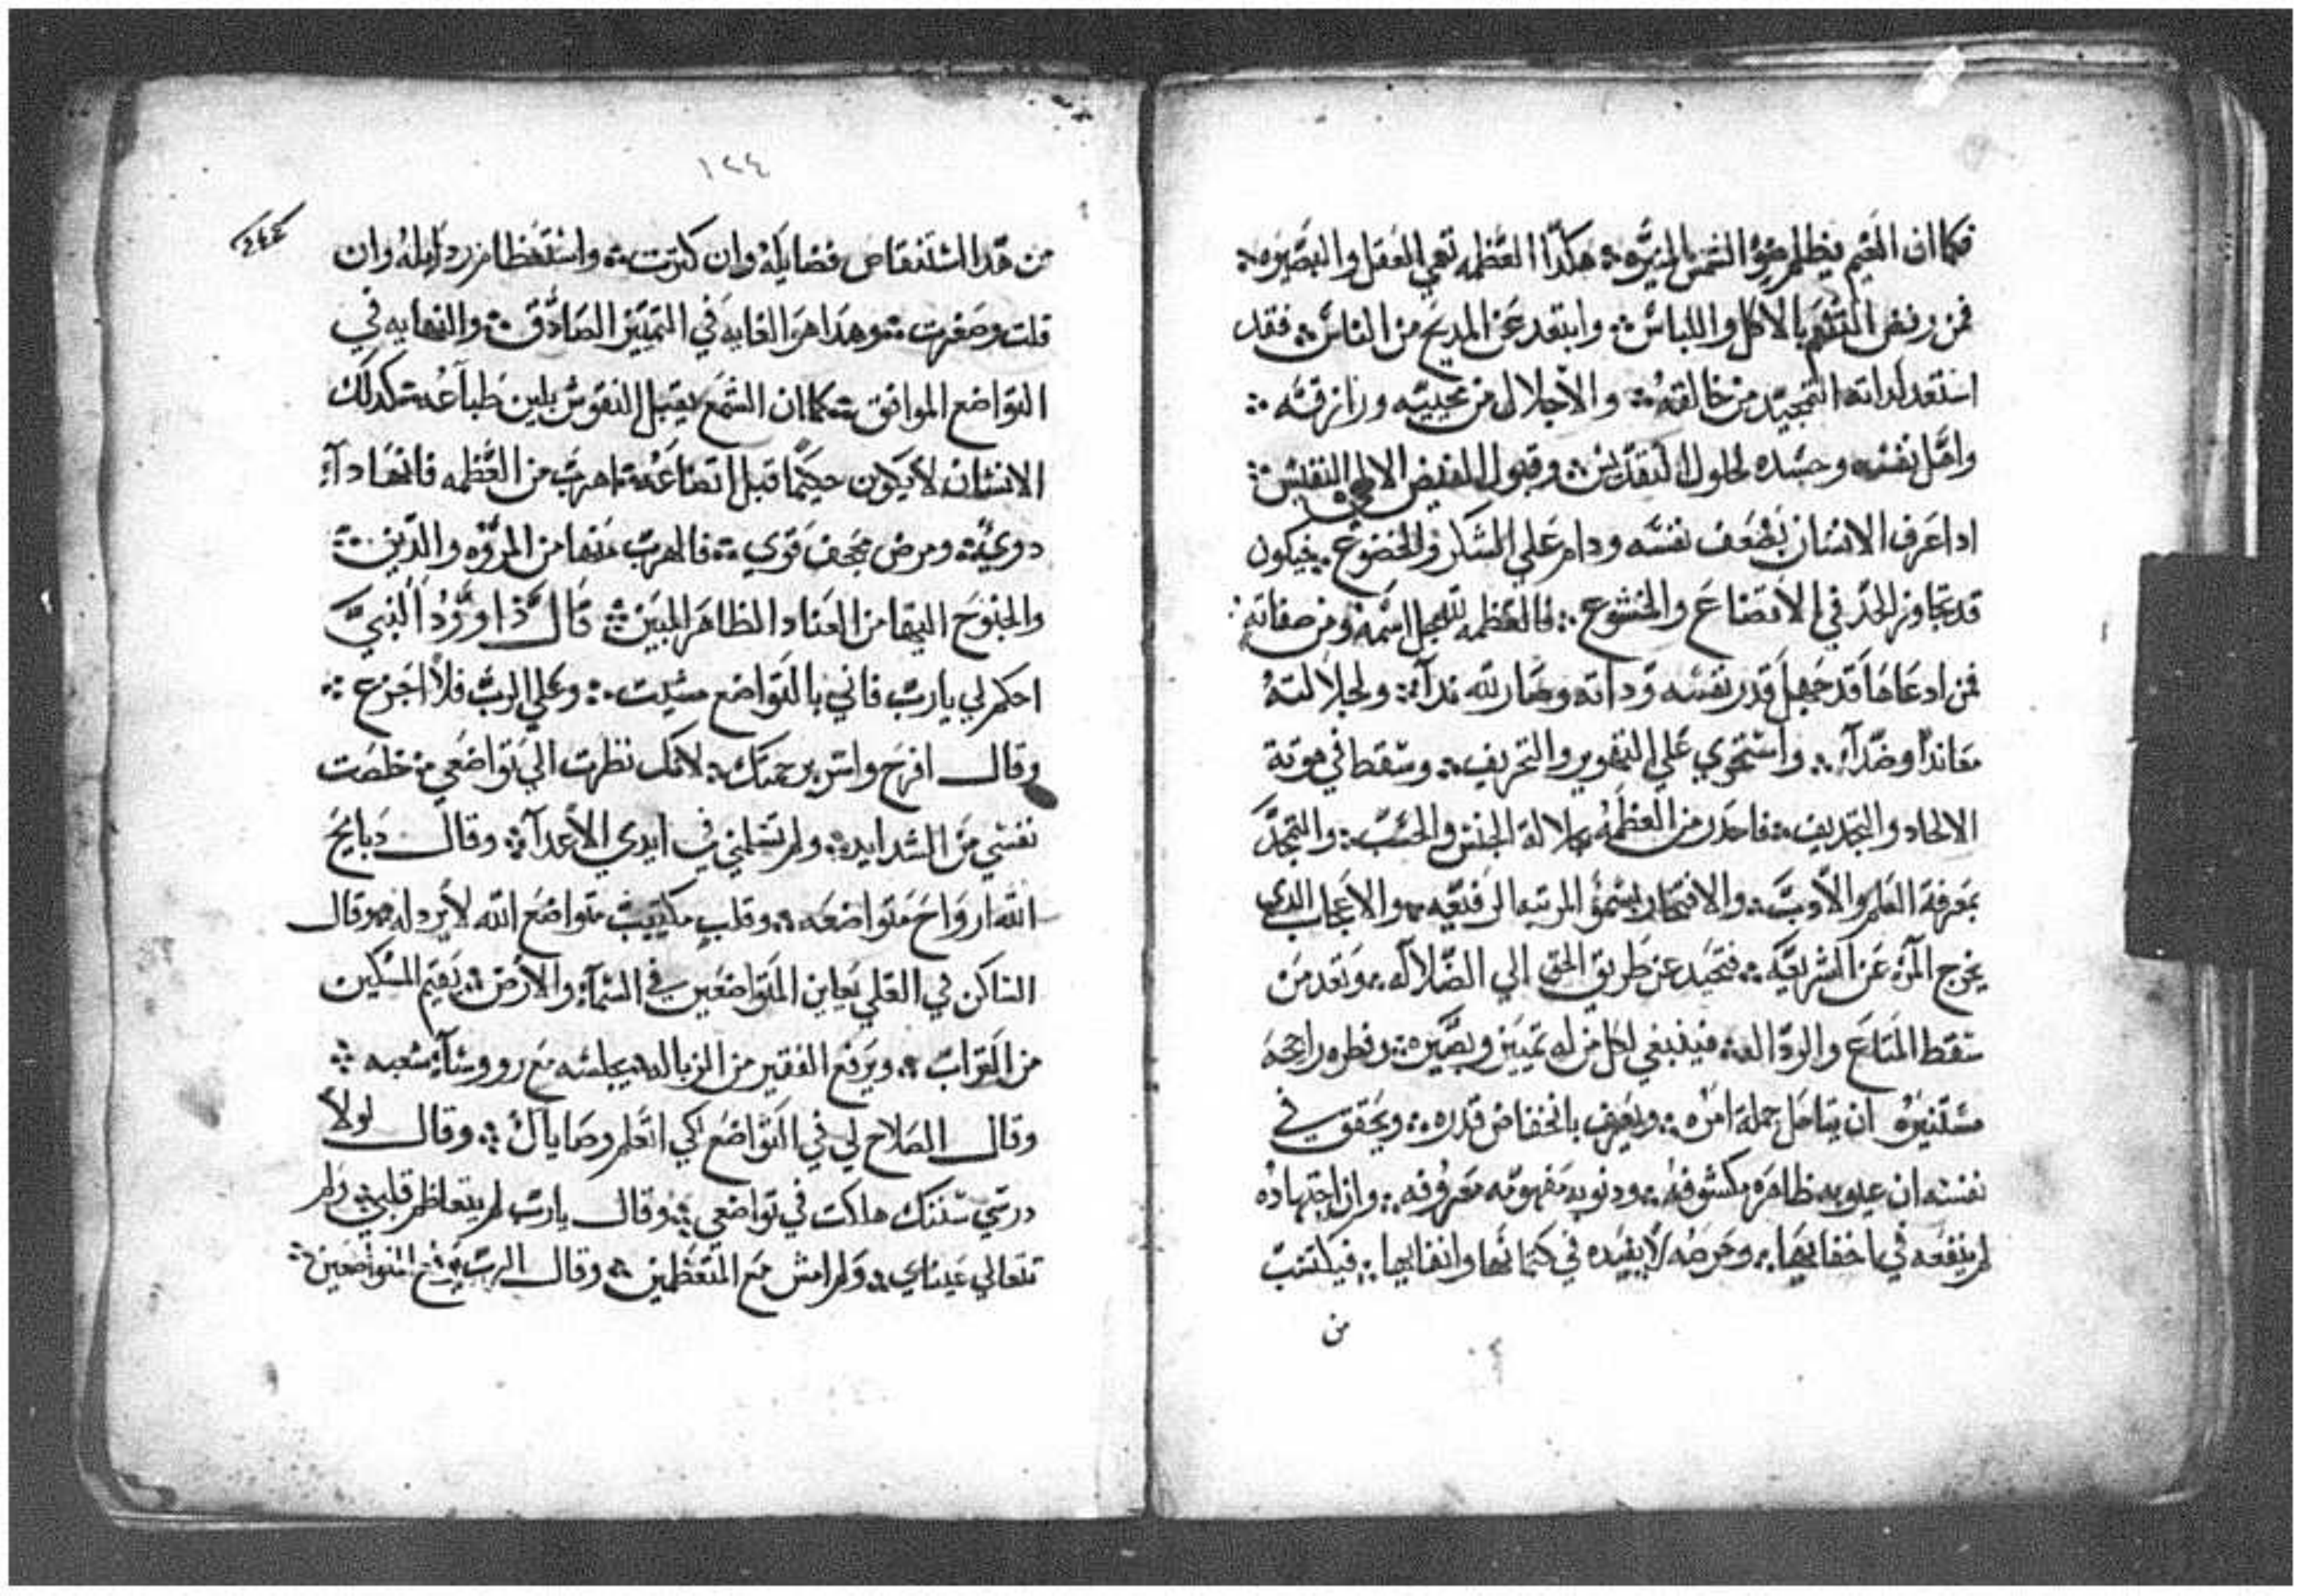 فكما ان الغيم يظلم ضوء الشمس المنيره ؞ هكدا العظمه تعمي العقل والبصيره ؞
فمن رفض التنعم بالاكل واللباس ؞ وابتعد عن المديح من الناس ؞ فقد
استعد لداته التمجيد من خالقه ؞ والاجلال من محييه ورازقه ؞
واهل نفسه وجسده لحلول التقديس ؞ وقبول الفيض الالهي النفيس ؞
ادا عرف الانسان بضعف نفسه ودام علي الشكر والخضوع ؞ فيكون
قد تجاوز الحد في الاتضاع والخشوع ؞ فالعظمه لله جل اسمه ومن صفاته ؞
فمن ادعاها قد جهل قدر نفسه وداته وصار لله ندآء ؞ ولجلالته
معاندا وضدآء ؞ واستحوي علي التمويه والتحريف ؞ وسقط في هوتة
الالحاد والتجديف ؞ فاحدر من العظمه بجلالة الجنس والحسب ؞ والتمجد
بمعرفة العلم والادب ؞ والافتخار بسمو المرتبه الرفيعه ؞ والاعجاب الدي
يخرج المرء عن الشريعه ؞ فتحيد عن طريق الحق الي الضلاله ؞ وتعد من
سقط المتاع والردالة ؞ فينبغي لكل من له تمييز وبصيره ؞ وفطره راجحه
مستنيره ان يتامل جملة امره ؞ ويعرف بانخفاض قدره ؞ ويحقق في
نفسه ان عيوبه ظاهره مكشوفه ؞ ودنوبه مفهومه معروفه ؞ وان اجتهاده
لم ينفعه في اخفايها ؞ وحرصه لا يفيده في كتمانها وانفايها ؞ فيكتسب
من
١٢٤
من هدا استنقاص فضايله وان كثرت ؞ واستعظام ردايله وان
قلت وصغرت ؞ وهدا هو الغايه في التمييز الصادق ؞ والنهايه في
التواضع الموافق ؞ كما ان الشمع يقبل النقوش بلين طباعه ؞ كدلك
الانسان لا يكون حكيما قبل اتضاعه ؞ اهرب من العظمه فانها دآء
دوي ؞ ومرض مجحف قوي ؞ فالهرب منها من المروه والدين ؞
والجنوح اليها من العناد الظاهر المبين ؞ قال داوود النبي
احكم لي يارب فاني بالتواضع مشيت ؞ وعلي الرب فلا اجزع ؞
وقال افرح واسر برحمتك ؞ لانك نظرت الي تواضعي ؞ خلصت
نفسي من الشدايد ؞ ولم تسلمني في ايدي الاعدآء ؞ وقال دبايح
الله ارواح متواضعه ؞ وقلب مكتيب متواضع الله لا يرد له ؞ وقال
الساكن في العلي يعاين المتواضعين في السمآء والارض ؞ يقيم المسكين
من التراب ؞ ويرفع الفقير من الزباله يجلسه مع رووسآء شعبه ؞
وقال الصلاح لي في التواضع لكي اتعلم وصاياك ؞ وقال لولا
درسي سننك هلكت في تواضعي ؞ وقال يارب لم يتعاظم قلبي ؞ ولم
تتعالي عيناي ؞ ولم امش مع المتعظمين ؞ وقال الرب يرفع المتواضعين ؞